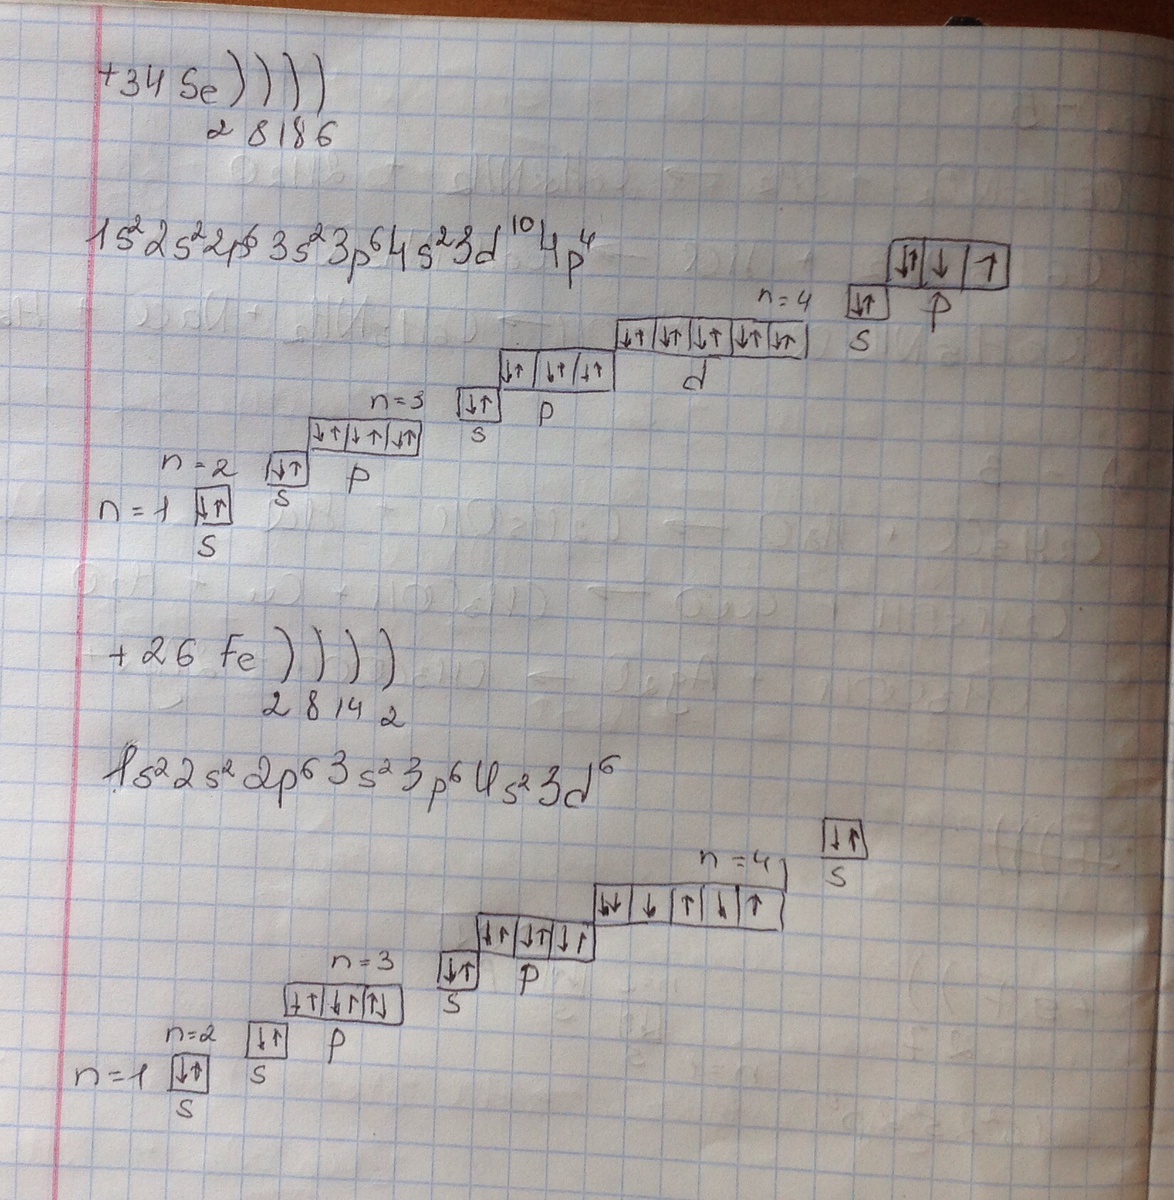 +34 Se ) ) ) )
2 8 18 6
1s²2s²2p⁶3s²3p⁶4s²3d¹⁰4p⁴
↓↑ ↓ ↑
n=4 ↓↑ p
s
↓↑ ↓↑ ↓↑ ↓↑ ↓↑
d
↓↑ ↓↑ ↓↑
n=3 ↓↑ p
s
↓↑ ↓↑ ↓↑
n=2 ↓↑ p
s
n=1 ↓↑
s
+26 Fe ) ) ) )
2 8 14 2
1s²2s²2p⁶3s²3p⁶4s²3d⁶
n=4 ↓↑
s
↓↓ ↓ ↑ ↓ ↑
↓↑ ↓↑ ↓↑
n=3 ↓↑ p
s
↓↑ ↓↑ ↑↓
n=2 ↓↑ p
s
n=1 ↓↑
s